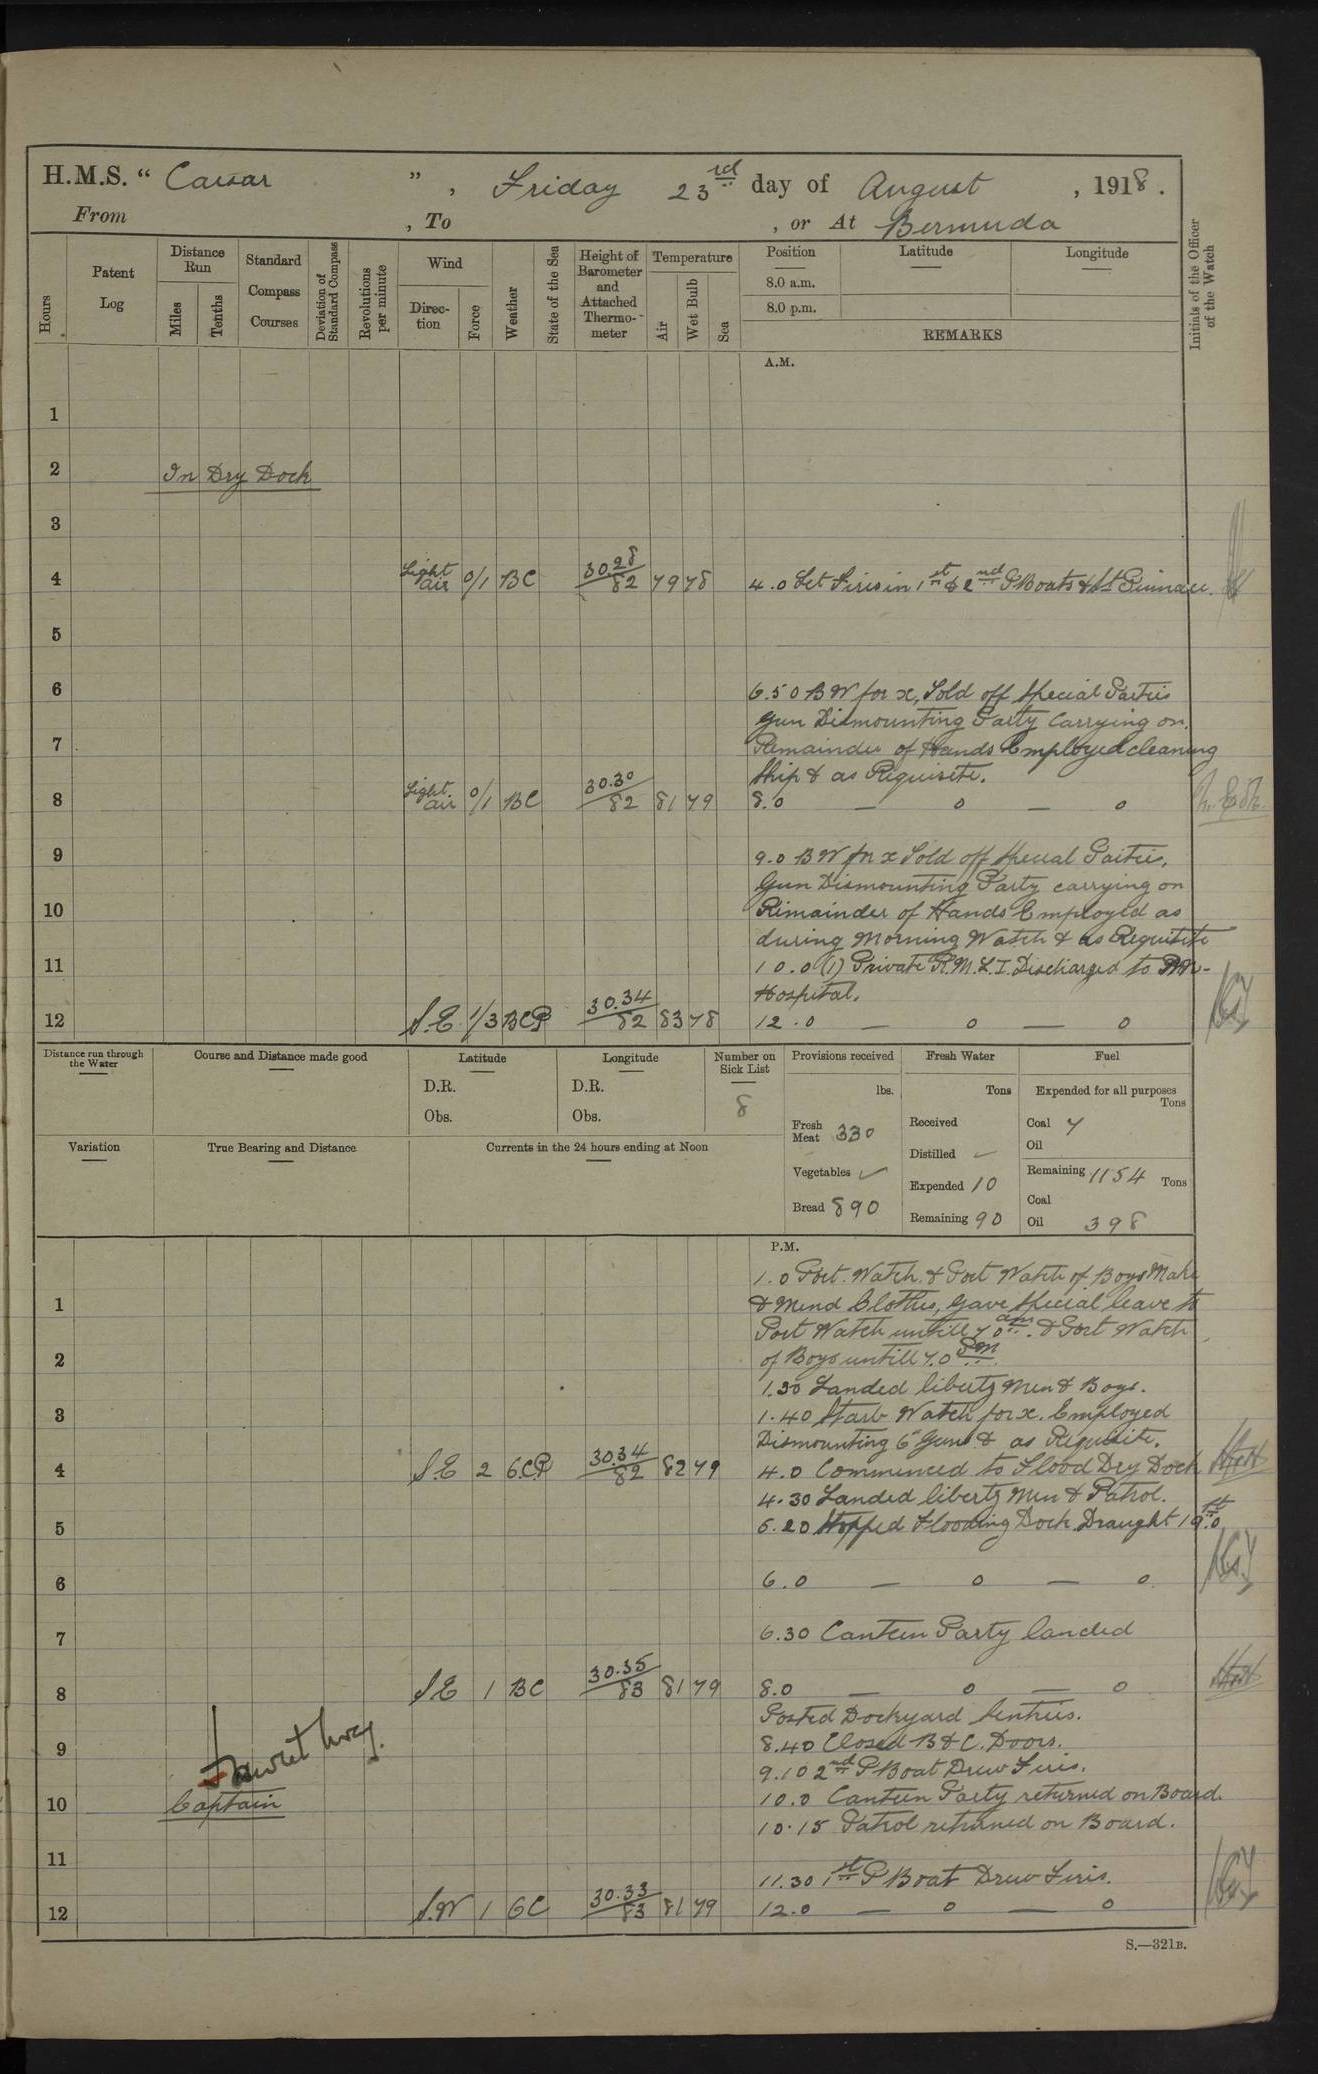 H.M.S. “ Caesar ” , Friday 23rd day of August , 1918 .
From , To , or At Bermuda
Hours
Patent Log
Distance Run
Miles
Tenths
Standard Compass Courses
Deviation of Standard Compass
Revolutions per minute
Wind
Direction
Force
Weather
State of the Sea
Height of Barometer and Attached Thermometer
Temperature
Air
Wet Bulb
Sea
Position
Latitude
Longitude
8.0 a.m.
8.0 p.m.
REMARKS
Initials of the Officer of the Watch
A.M.
1
2 In Dry Dock
3
4 Light air 0/1 BC 30.28 82 79 78 4.0 Let Fires in 1st & 2nd P Boats & St Pinnace.
5
6 6.50 B W for x, Told off Special Parties
Gun Dismounting Party carrying on.
7 Remainder of Hands Employed cleaning
Ship & as Requisite.
8 Light air 0/1 BC 30.30 82 81 79 8.0 — 0 — 0
9 9.0 B W for x Told off Special Parties.
Gun Dismounting Party carrying on
10 Remainder of Hands Employed as
during Morning Watch & as Requisite
11 10.0 (1) Private R.M.L.I. Discharged to
Hospital.
12 S.E 1/3 BCP 30.34 82 83 78 12.0 — 0 — 0
Distance run through the Water
Course and Distance made good
Latitude
D.R.
Obs.
Longitude
D.R.
Obs.
Number on Sick List
8
Provisions received
lbs.
Fresh Meat 330
Vegetables ✓
Bread 890
Fresh Water
Tons
Received
Distilled ✓
Expended 10
Remaining 90
Fuel
Expended for all purposes
Tons
Coal 7
Oil
Remaining 1154 Tons
Coal
Oil 398
Variation
True Bearing and Distance
Currents in the 24 hours ending at Noon
P.M.
1.0 Port. Watch. & Port Watch of Boys Make
1 & Mend Clothes, Gave Special leave to
Port Watch untill 7.0 am. & Port Watch
2 of Boys untill 7.0 PM.
1.30 Landed liberty Men & Boys.
3 1.40 Starb Watch for x. Employed
Dismounting 6" Guns & as Requisite.
4 S.E 2 GCP 30.34 82 82 79 4.0 Commenced to Flood Dry Dock
4.30 Landed liberty Men & Patrol.
5 5.20 Stopped Flooding Dock Draught 19.0
6 6.0 — 0 — 0
7 6.30 Canteen Party landed
8 S.E 1 BC 30.35 83 81 79 8.0 — 0 — 0
Posted Dockyard Sentries.
9 8.40 Closed B & C. Doors.
9.10 2nd P Boat Drew Fires.
10 Captain 10.0 Canteen Party returned on Board.
10.15 Patrol returned on Board.
11
11.30 1st P Boat Drew Fires.
12 S.W 1 GC 30.33 83 81 79 12.0 — 0 — 0
S.—321B.